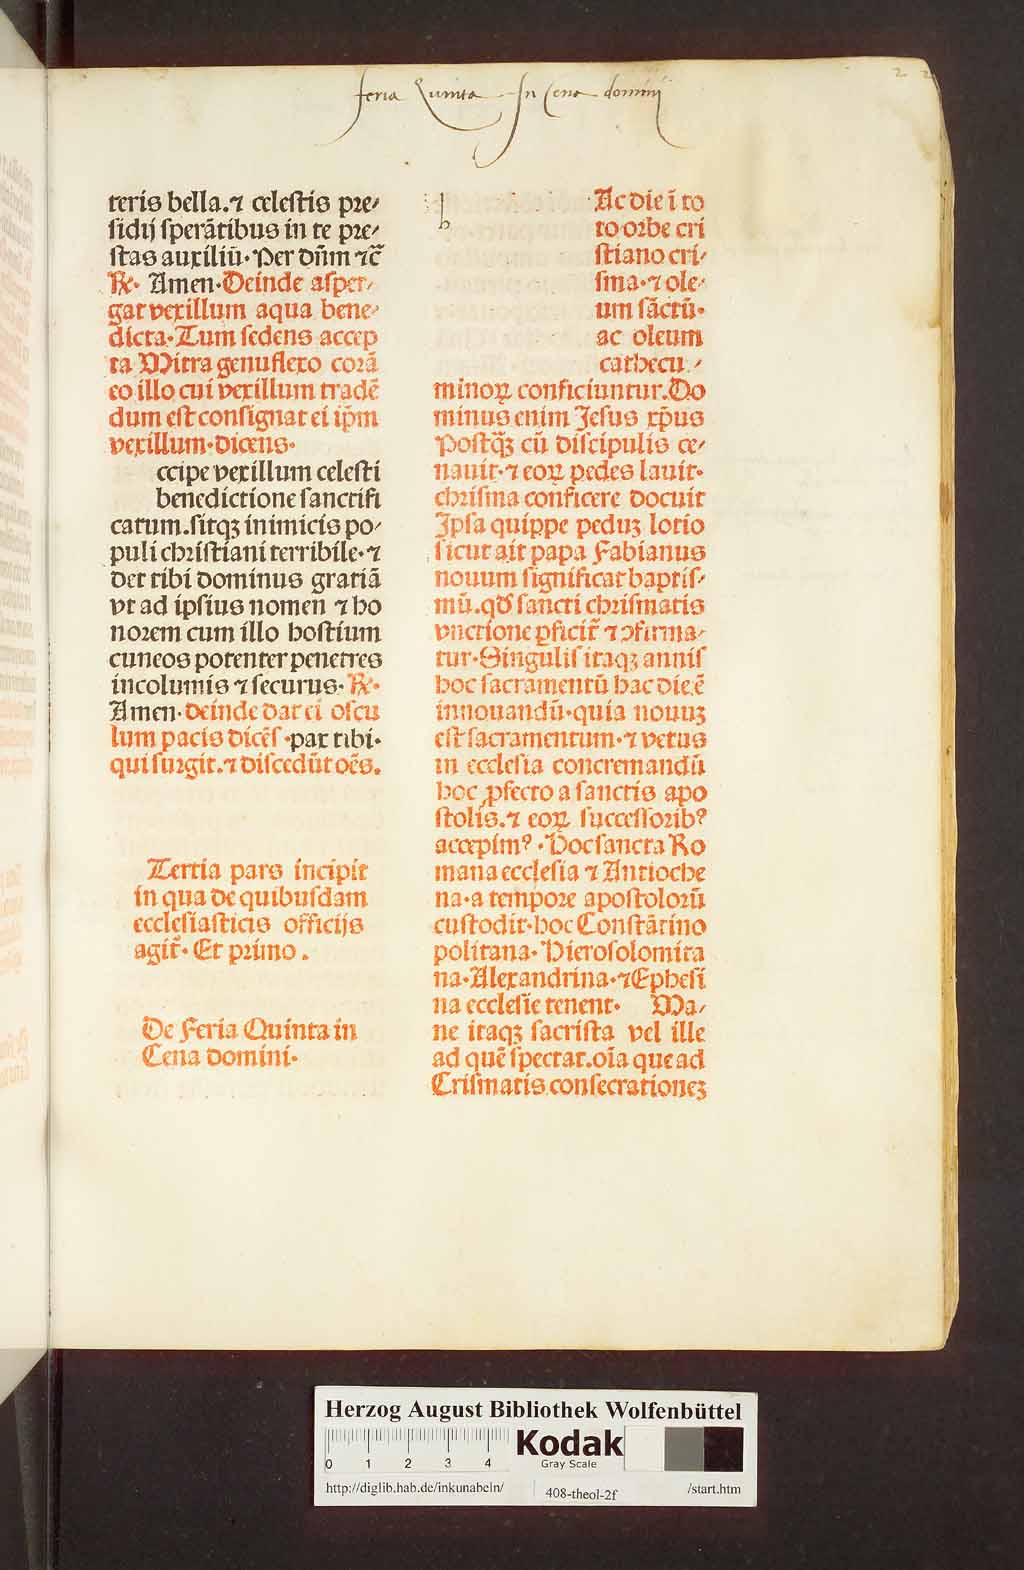 feria Quinta In Cena domini
22
teris bella.⁊ celestis pre⸗
sidij sperãtibus in te pre⸗
stas auxiliũ· Per dñm ⁊c̃
℟· Amen·Deinde asper⸗
gat vexillum aqua bene⸗
dicta·Tum sedens accep
ta Mitra genuflexo corã
eo illo cui vexillum tradẽ
dum est consignat ei ip̃m
vexillum·dicens·
ccipe vexillum celesti
benedictione sanctifi
catum.sitqꝫ inimicis po⸗
puli christiani terribile·⁊
det tibi dominus gratiã
vt ad ipsius nomen ⁊ ho
norem cum illo hostium
cuneos potenter penetres
incolumis ⁊ securus· ℟·
Amen·deinde dat ei oscu
lum pacis dicẽs·pax tibi·
qui surgit.⁊ discedũt oẽs.
Tertia pars incipit
in qua de quibusdam
ecclesiasticis officijs
agit̃· Et primo.
De Feria Quinta in
Cena domini·
h
Ac die ĩ to
to orbe cri
stiano cri⸗
sma·⁊ ole⸗
um sãctũ·
ac oleum
cathecu⸗
minoꝝ conficiuntur.Do
minus enim Jesus xp̃us
Postq̃ꝫ cũ discipulis ce⸗
nauit·⁊ eoꝝ pedes lauit·
chrisma conficere docuit
Ipsa quippe peduꝫ lotio
sicut ait papa Fabianus
nouum significat baptis⸗
mũ.qđ sancti chrismatis
vnctione ꝑficit̃ ⁊ ꝯfirma⸗
tur·Singulis itaqꝫ annis
hoc sacramentũ hac die.ẽ
innouandũ·quia nouuꝫ
est sacramentum·⁊ vetus
in ecclesia concremandũ
hoc ꝓfecto a sanctis apo
stolis.⁊ eoꝝ successoribꝰ
accepimꝰ·Hoc sancta Ro
mana ecclesia ⁊ Antioche
na·a tempore apostolorũ
custodit·hoc Constãtino
politana·Hierosolomita
na·Alexandrina·⁊ Ephesĩ
na ecclesie tenent· Ma⸗
ne itaqꝫ sacrista vel ille
ad quẽ spectat.oĩa que ad
Crismatis consecrationeꝫ
Herzog August Bibliothek Wolfenbüttel
0 1 2 3 4
Kodak
Gray Scale
http://diglib.hab.de/inkunabeln/
408-theol-2f
/start.htm